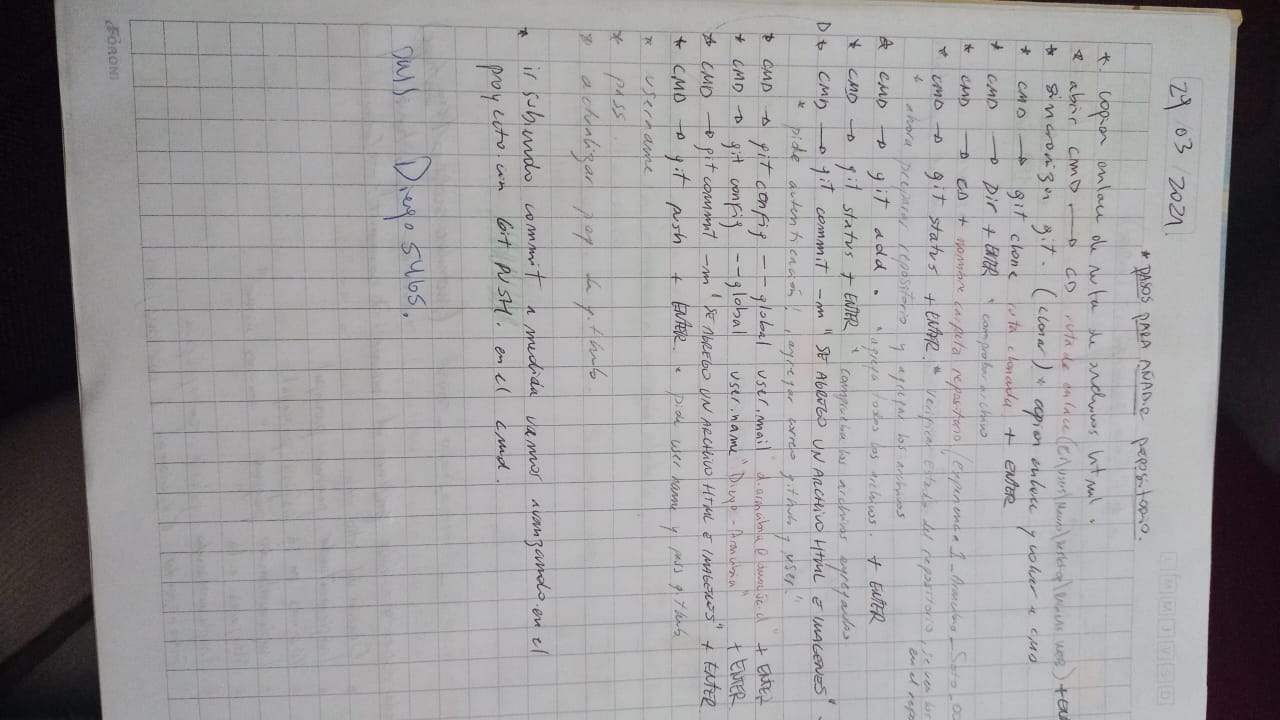 29 03 2021.
D S V J M M L
* PASOS PARA AÑADIR repositorio.
* copiar enlace de ruta de archivos html.
* abrir CMD → CD ruta de enlace (C:\users\ \desktop\ WEB) + EN
* Sincronizar git. (clonar) * copiar enlace y volver a CMD
* CMD → git clone ruta clonada + ENTER
* CMD → Dir + ENTER * comprobar archivo
* CMD → CD + nombre carpeta repositorio / Experiencia 1_Arancibia_Soto_00
* CMD → git status + ENTER. * Verificar Estado del repositorio, se ven los
en el repo
* ahora preparar repositorio y agregar los archivos
* CMD → git add . * agrega todos los archivos. + ENTER
* CMD → git status + ENTER * comprueba los archivos agregados
D * CMD → git commit -m " SE AGREGO UN ARCHIVO HTML E IMAGENES" -
* pide autenticación!, agregar correo github y user."
* CMD → git config --global user.mail " " + ENTER
* CMD → git config --global user.name "Diego-Arancibia" + ENTER
* CMD → git commit -m " SE AGREGO UN ARCHIVO HTML E IMAGENES" + ENTER
* CMD → git push + ENTER. * pide user name y pass github
* username
* pass.
* actualizar pag. de github
* ir subiendo commit a medida vamos avanzando en el
proyecto. con Git PUSH. en el cmd.
pass Diego5465.
FORONI